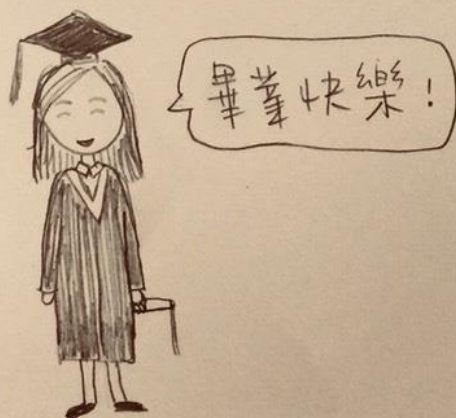 畢業快樂！